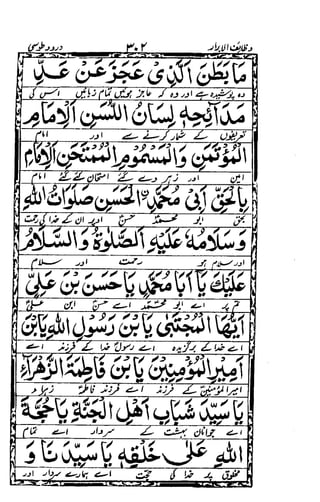 وظائف الابرار ۳۰۲ درود طوسی
مَا بَطَنَ الَّذِیْ عَجَزَ عَنْ عَدِّ
وہ پوشیدہ ہے اور وہ کہ عاجز ہوئیں تمام زبانیں اس کی
مَدَآئِحِهٖ لِسَانُ اللُّسُنِ الْاِمَامِ
تعریفوں کے شمار کرنے سے اور امام
الْمُؤْتَمَنِ وَالْمَسْمُوْمِ الْمُمْتَحَنِ الْاِمَامِ
امین اور زہر دے گئے امتحان کئے گئے امام
بِالْحَقِّ اَبِیْ مُحَمَّدِ نِ الْحَسَنِ صَلَوَاتُ اللّٰهِ
بحق ابو محمد حسن اوپر ان کے خدا کی رحمت
وَسَلَامُهٗ عَلَيْهِ اَلصَّلٰوةُ وَالسَّلَامُ
اور سلام ہو رحمت اور سلام
عَلَيْكَ يَا اَبَا مُحَمَّدٍ يَا حَسَنَ بْنَ عَلِيٍّ
تم پر اے ابو محمد اے حسن ابن علی
اَيُّهَا الْمُجْتَبٰى يَا بْنَ رَسُوْلِ اللّٰهِ يَا بْنَ
اے خدا کے برگزیدہ اے رسول خدا کے فرزند اے
اَمِيْرِ الْمُؤْمِنِيْنَ يَا بْنَ فَاطِمَةَ الزَّهْرَآءِ
امیر المومنین کے فرزند اے فرزند فاطمہ زہرا
يَا سَيِّدَ شَبَابِ اَهْلِ الْجَنَّةِ يَا حُجَّةَ
اے جوانان بہشت کے سردار اے تمام
اللّٰهِ عَلٰى خَلْقِهٖ يَا سَيِّدَنَا وَ
مخلوق پر خدا کی حجت اے ہمارے سردار اور